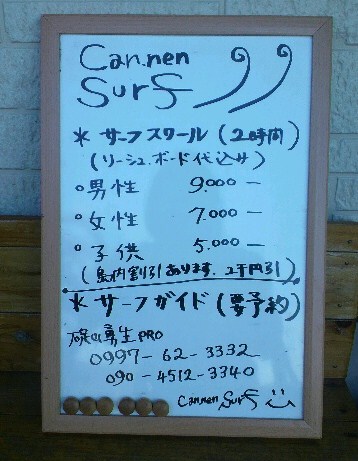 Cannen
Surf
* サーフスクール (2時間)
(リーシュ.ボード代込み)
○男性 9.000 ー
○女性 7.000 ー
○子供 5.000 ー
(島内割引あります. 2千円引)
* サーフガイド (要予約)
碇山勇生 PRO
0997-62-3332
090-4512-3340
Cannen Surf